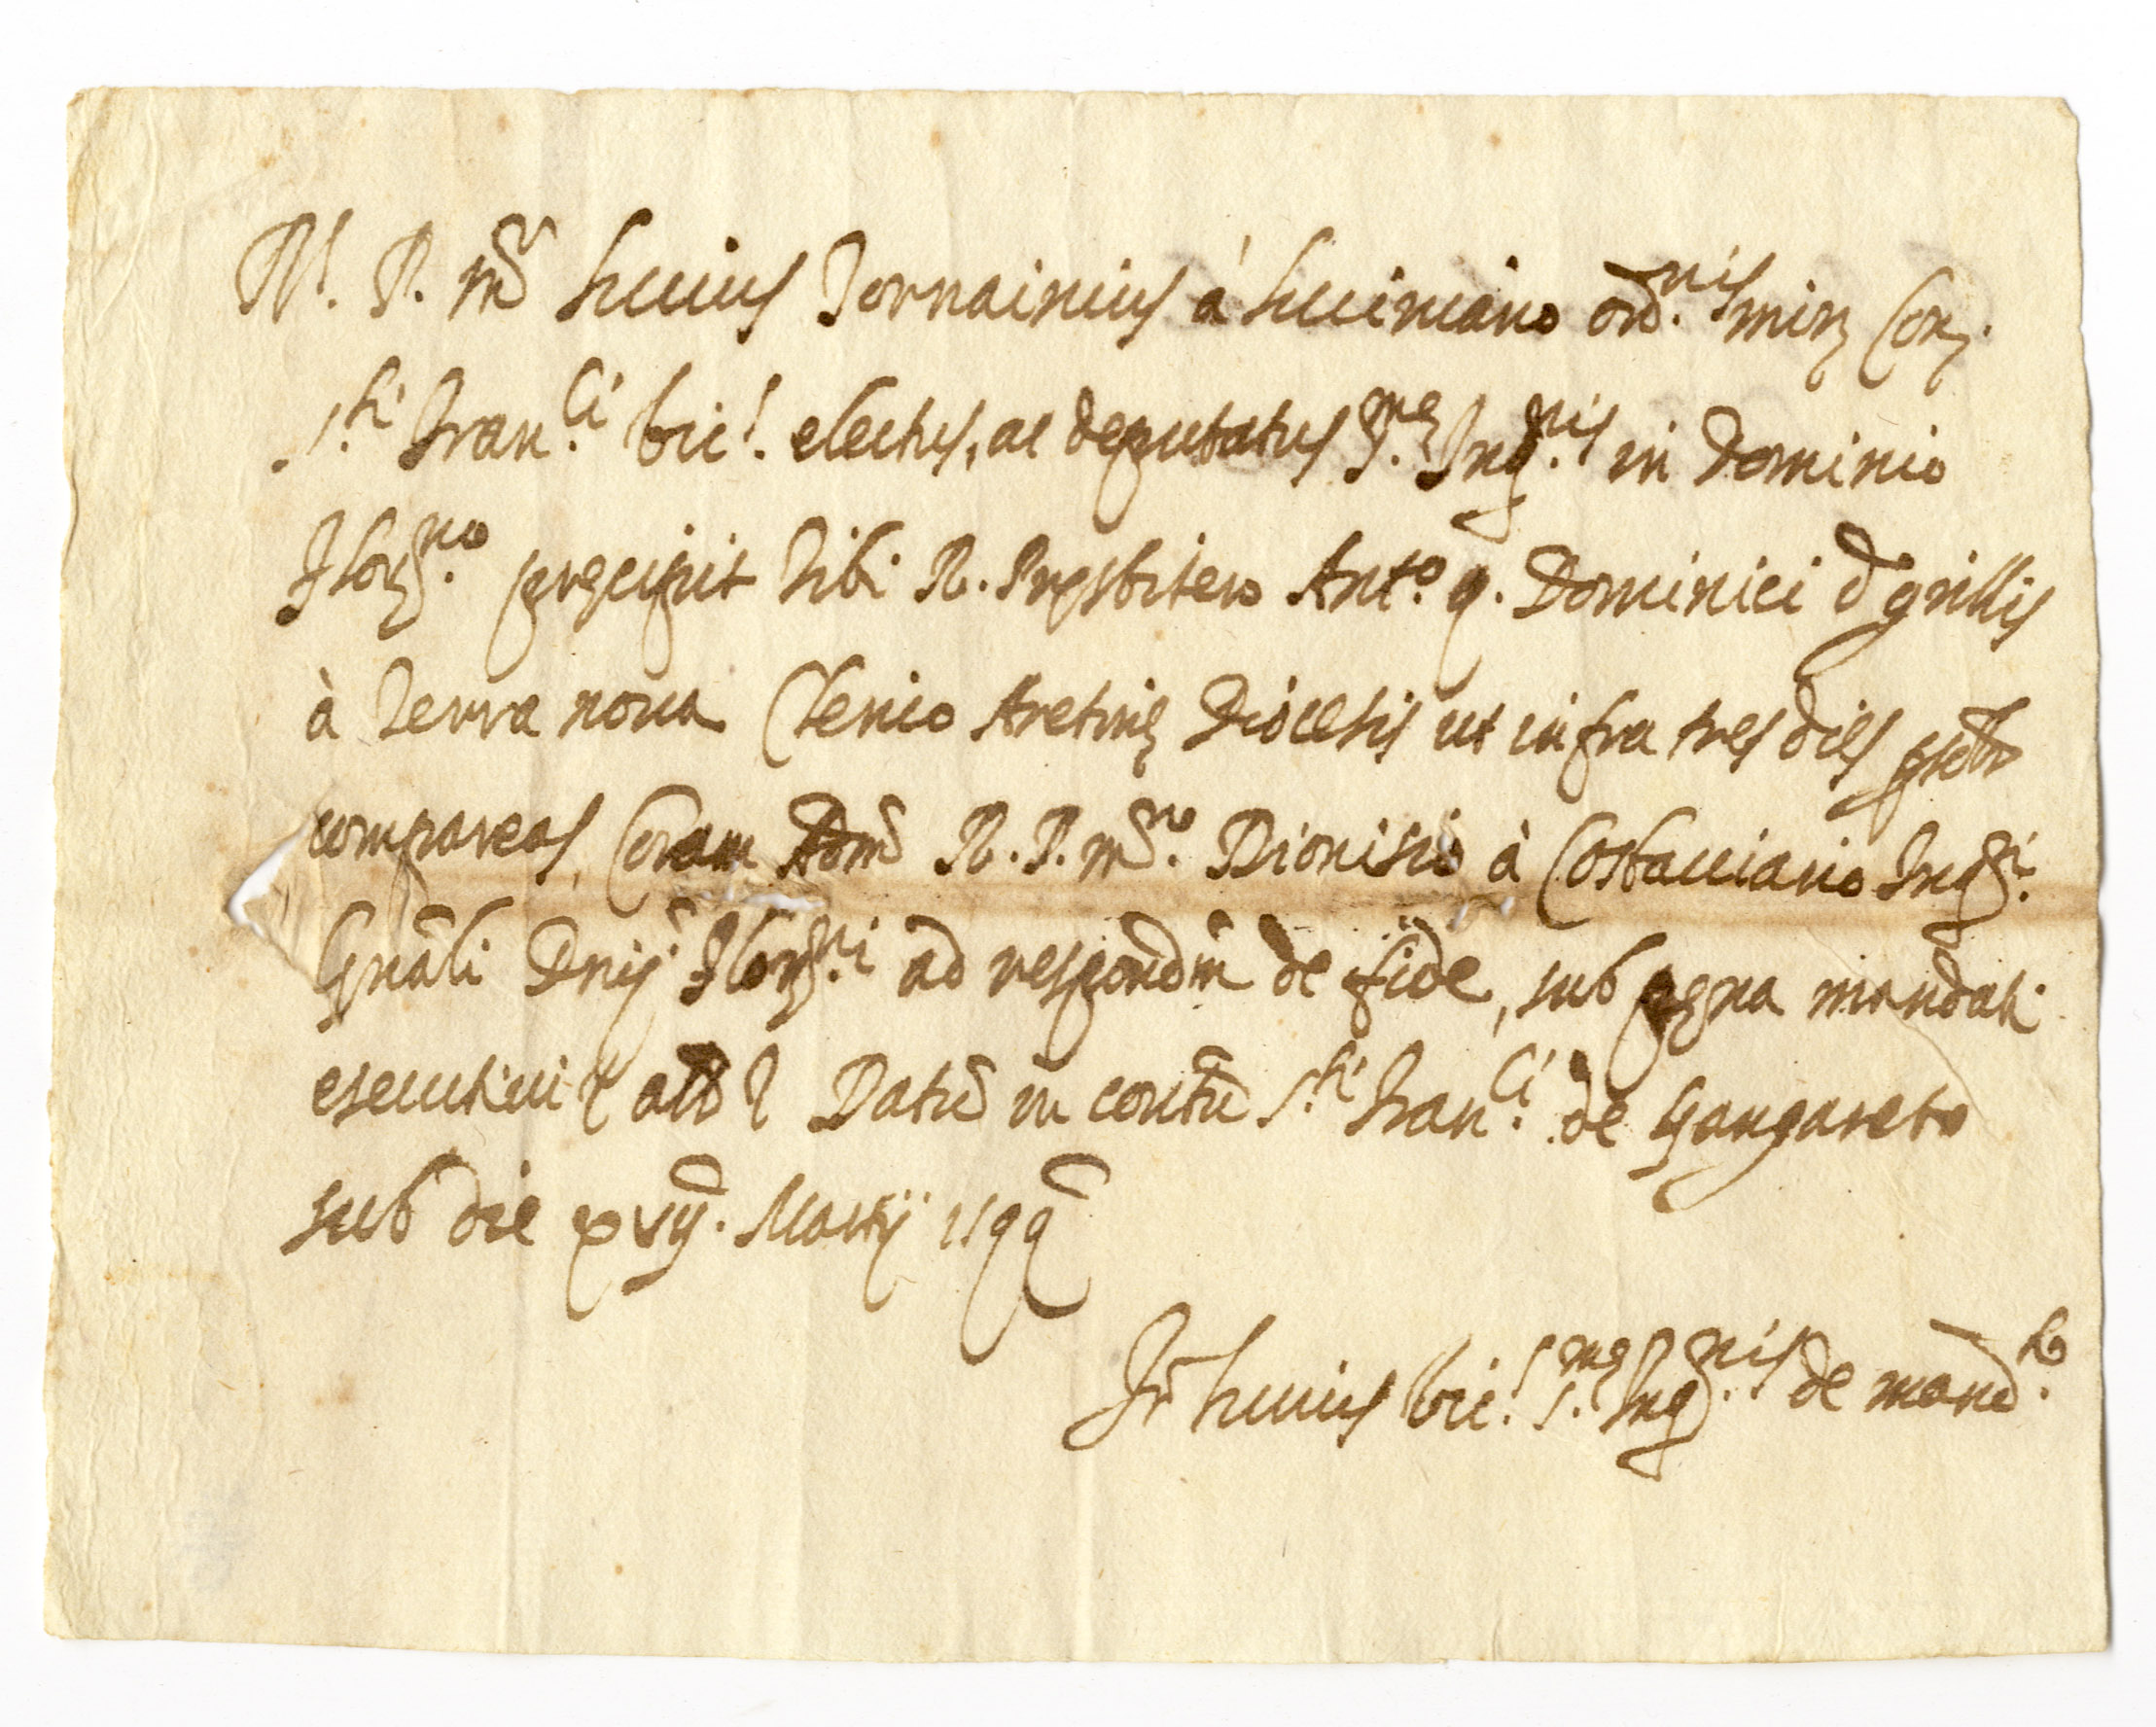 R. P. Mr Livius Tornainius à Luciniano ord.nis min. Con.
S.ti Fran.ci vic.s electus, ac deputatus S.mę Inq.nis in Dominio
Flor.no pręcipit tibi R. Pręsbitero Ant.o q. Dominici de grillis
à Terra nova Clerico Aretinę Diocesis ut infra tres dies
compareas, Coram Adm. R. P. M.ro Dionisio à Costacciario Inq.ri
Gnāli Dnij Flor.ni ad respondm de fide, sub pęna mandati
esecutivi Datū in contū S.ti Fran.ci de Gangareto
sub die xvij. Martij 1599
Fr Livius vic.s S.mę Inq.nis de mand.to